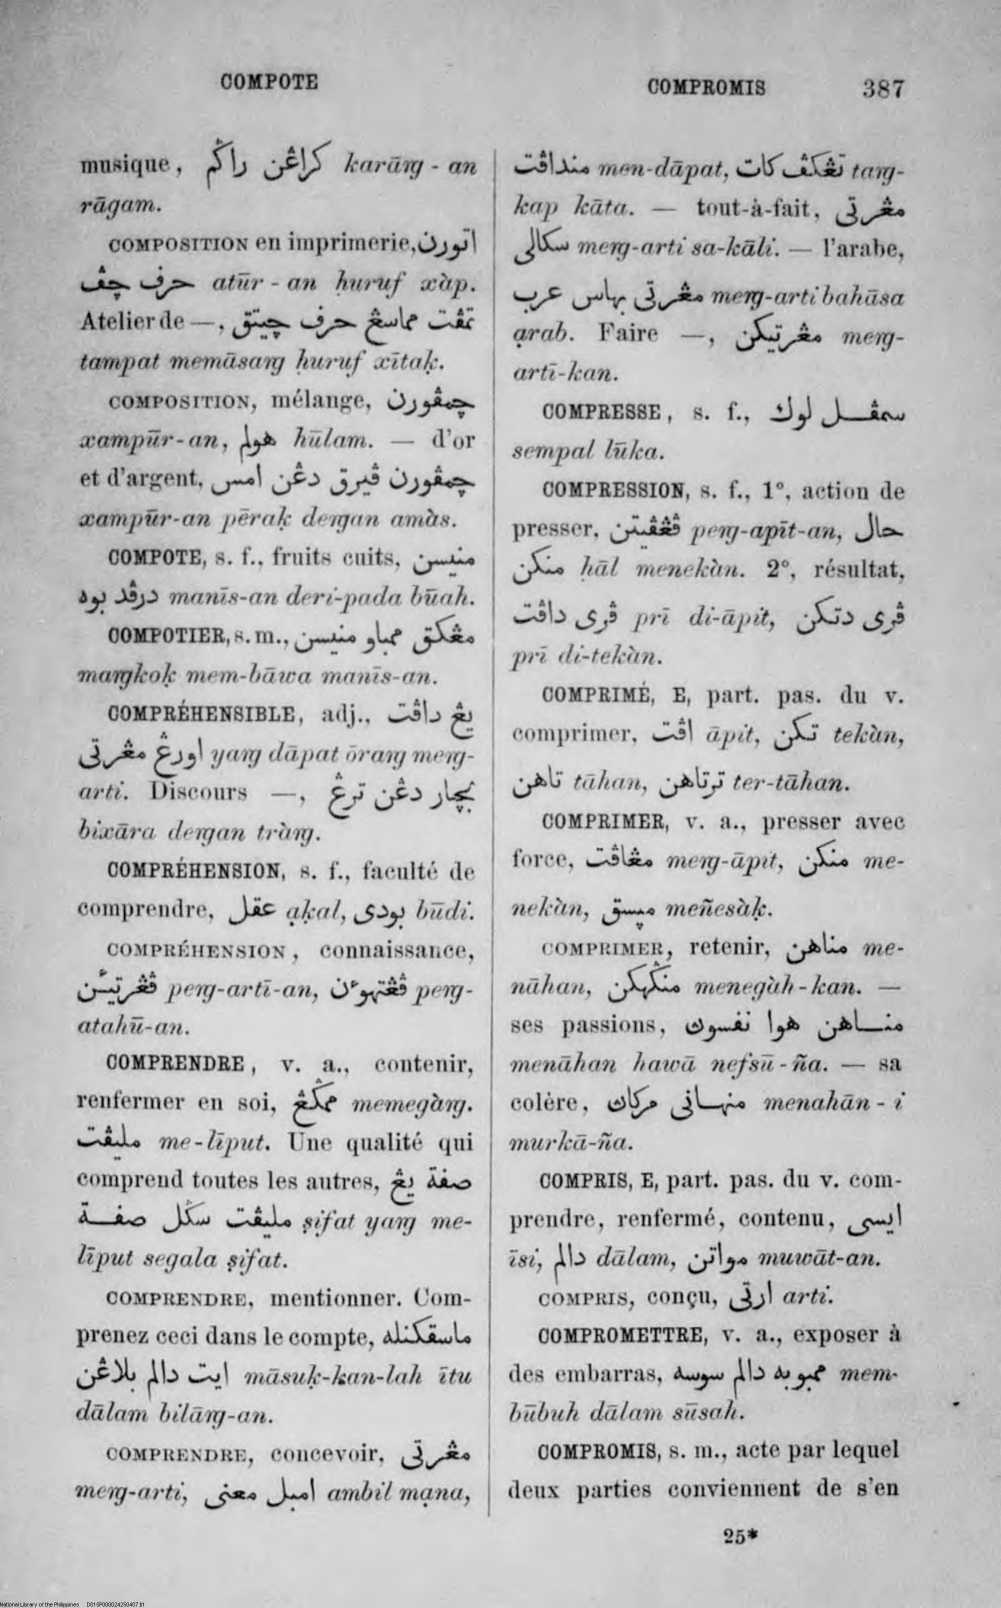 COMPOTE
COMPROMIS 387
musique, كراڠن راڬم karāng-an
rāgam.
COMPOSITION en imprimerie, اتورن
حرف چڤ atūr-an ḥuruf xàp.
Atelier de —, تمڤت مماسڠ حرف چيتق
tampat memāsang ḥuruf xītaḳ.
COMPOSITION, mélange, چمڤورن
xampūr-an, هولم hūlam. — d'or
et d'argent, چمڤورن ڤيرق دڠن امس
xampūr-an pēraḳ dengan amàs.
COMPOTE, s. f., fruits cuits, منيسن
درڤد بوه manīs-an deri-pada būah.
COMPOTIER, s. m., مڠكق ممباو منيسن
mangkoḳ mem-bāwa manīs-an.
COMPRÉHENSIBLE, adj., يڠ داڤت
اورڠ مڠرتى yang dāpat ōrang meng-
arti. Discours —, بچار دڠن ترڠ
bixāra dengan tràng.
COMPRÉHENSION, s. f., faculté de
comprendre, عقل ạḳal, بودى būdi.
COMPRÉHENSION, connaissance,
ڤڠرتئن peng-artī-an, ڤڠتهوءن peng-
atahū-an.
COMPRENDRE, v. a., contenir,
renfermer en soi, ممڬڠ memegàng.
مليڤت me-līput. Une qualité qui
comprend toutes les autres, صفة يڠ
مليڤت سڬل صفة ṣifat yang me-
līput segala ṣifat.
COMPRENDRE, mentionner. Com-
prenez ceci dans le compte, ماسقكنله
ايت دالم بلاڠن māsuḳ-kan-lah ītu
dālam bilāng-an.
COMPRENDRE, concevoir, مڠرتى
meng-arti, امبل معنى ambil mạna,
منداڤت men-dāpat, تڠكڤ كات tang-
kap kāta. — tout-à-fait, مڠرتى
سكالى meng-arti sa-kāli. — l'arabe,
مڠرتى بهاس عرب meng-arti bahāsa
ạrab. Faire —, مڠرتيكن meng-
artī-kan.
COMPRESSE, s. f., سمڤل لوك
sempal lūka.
COMPRESSION, s. f., 1°, action de
presser, ڤڠڤيتن peng-apīt-an, حال
منكن ḥāl menekàn. 2°, résultat,
ڤرى داڤت prī di-āpit, ڤرى دتكن
prī di-tekàn.
COMPRIMÉ, E, part. pas. du v.
comprimer, اڤت āpit, تكن tekàn,
تاهن tāhan, ترتاهن ter-tāhan.
COMPRIMER, v. a., presser avec
force, مڠاڤت meng-āpit, منكن me-
nekàn, meñesàḳ.
COMPRIMER, retenir, مناهن me-
nāhan, منڬهكن menegàh-kan. —
ses passions, مناهن هوا نفسوڽ
menāhan hawā nefsū-ña. — sa
colère, منهانى مركاڽ menahān-i
murkā-ña.
COMPRIS, E, part. pas. du v. com-
prendre, renfermé, contenu, ايسى
īsi, دالم dālam, مواتن muwāt-an.
COMPRIS, conçu, ارتى arti.
COMPROMETTRE, v. a., exposer à
des embarras, ممبوبه دالم سوسه mem-
būbuh dālam sūsah.
COMPROMIS, s. m., acte par lequel
deux parties conviennent de s'en
25*
National Library of the Philippines